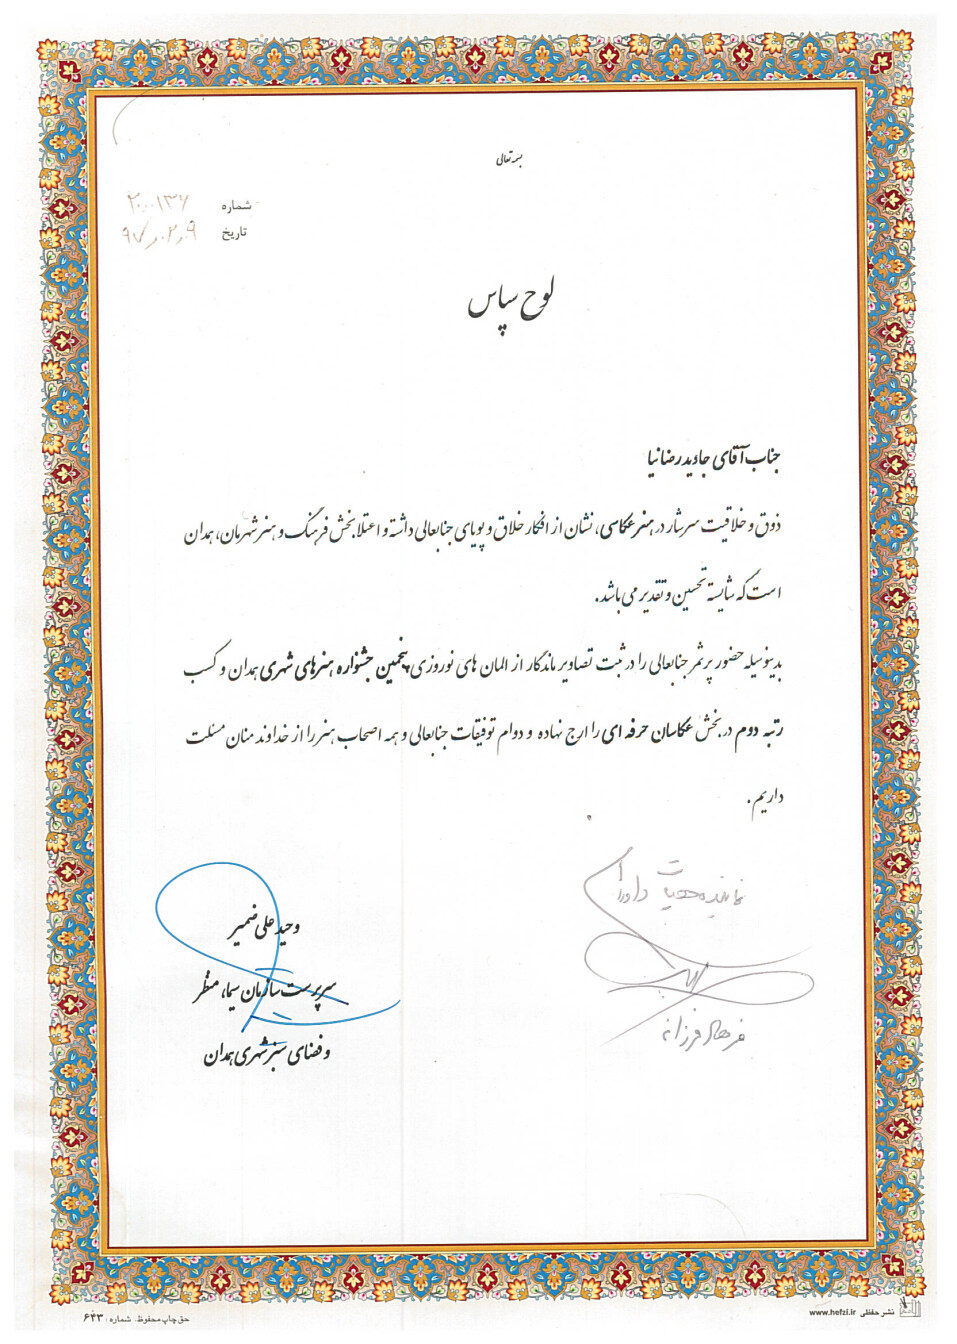 بسمه تعالی
شماره ۲۰۰۱۳۶
تاریخ ۹۷/۰۲/۰۹
لوح سپاس
جناب آقای جاوید رضانیا
ذوق و خلاقیت سرشار در هنر عکاسی، نشان از افکار خلاق و پویای جنابعالی داشته و اعتلا بخش فرهنگ و هنر شهرمان، همدان
است که شایسته تحسین و تقدیر می باشد.
بدینوسیله حضور پرثمر جنابعالی را در ثبت تصاویر ماندگار از المان های نوروزی پنجمین جشنواره هنرهای شهری همدان و کسب
رتبه دوم در بخش عکاسان حرفه ای را ارج نهاده و دوام توفیقات جنابعالی و همه اصحاب هنر را از خداوند منان مسئلت
داریم.
نماینده هیات داوران
فرهاد فرزانه
وحید علی ضمیر
سرپرست سازمان سیما، منظر
و فضای سبز شهری همدان
نشر حفظی www.hefzi.ir
حق چاپ محفوظ. شماره: ۶۴۳